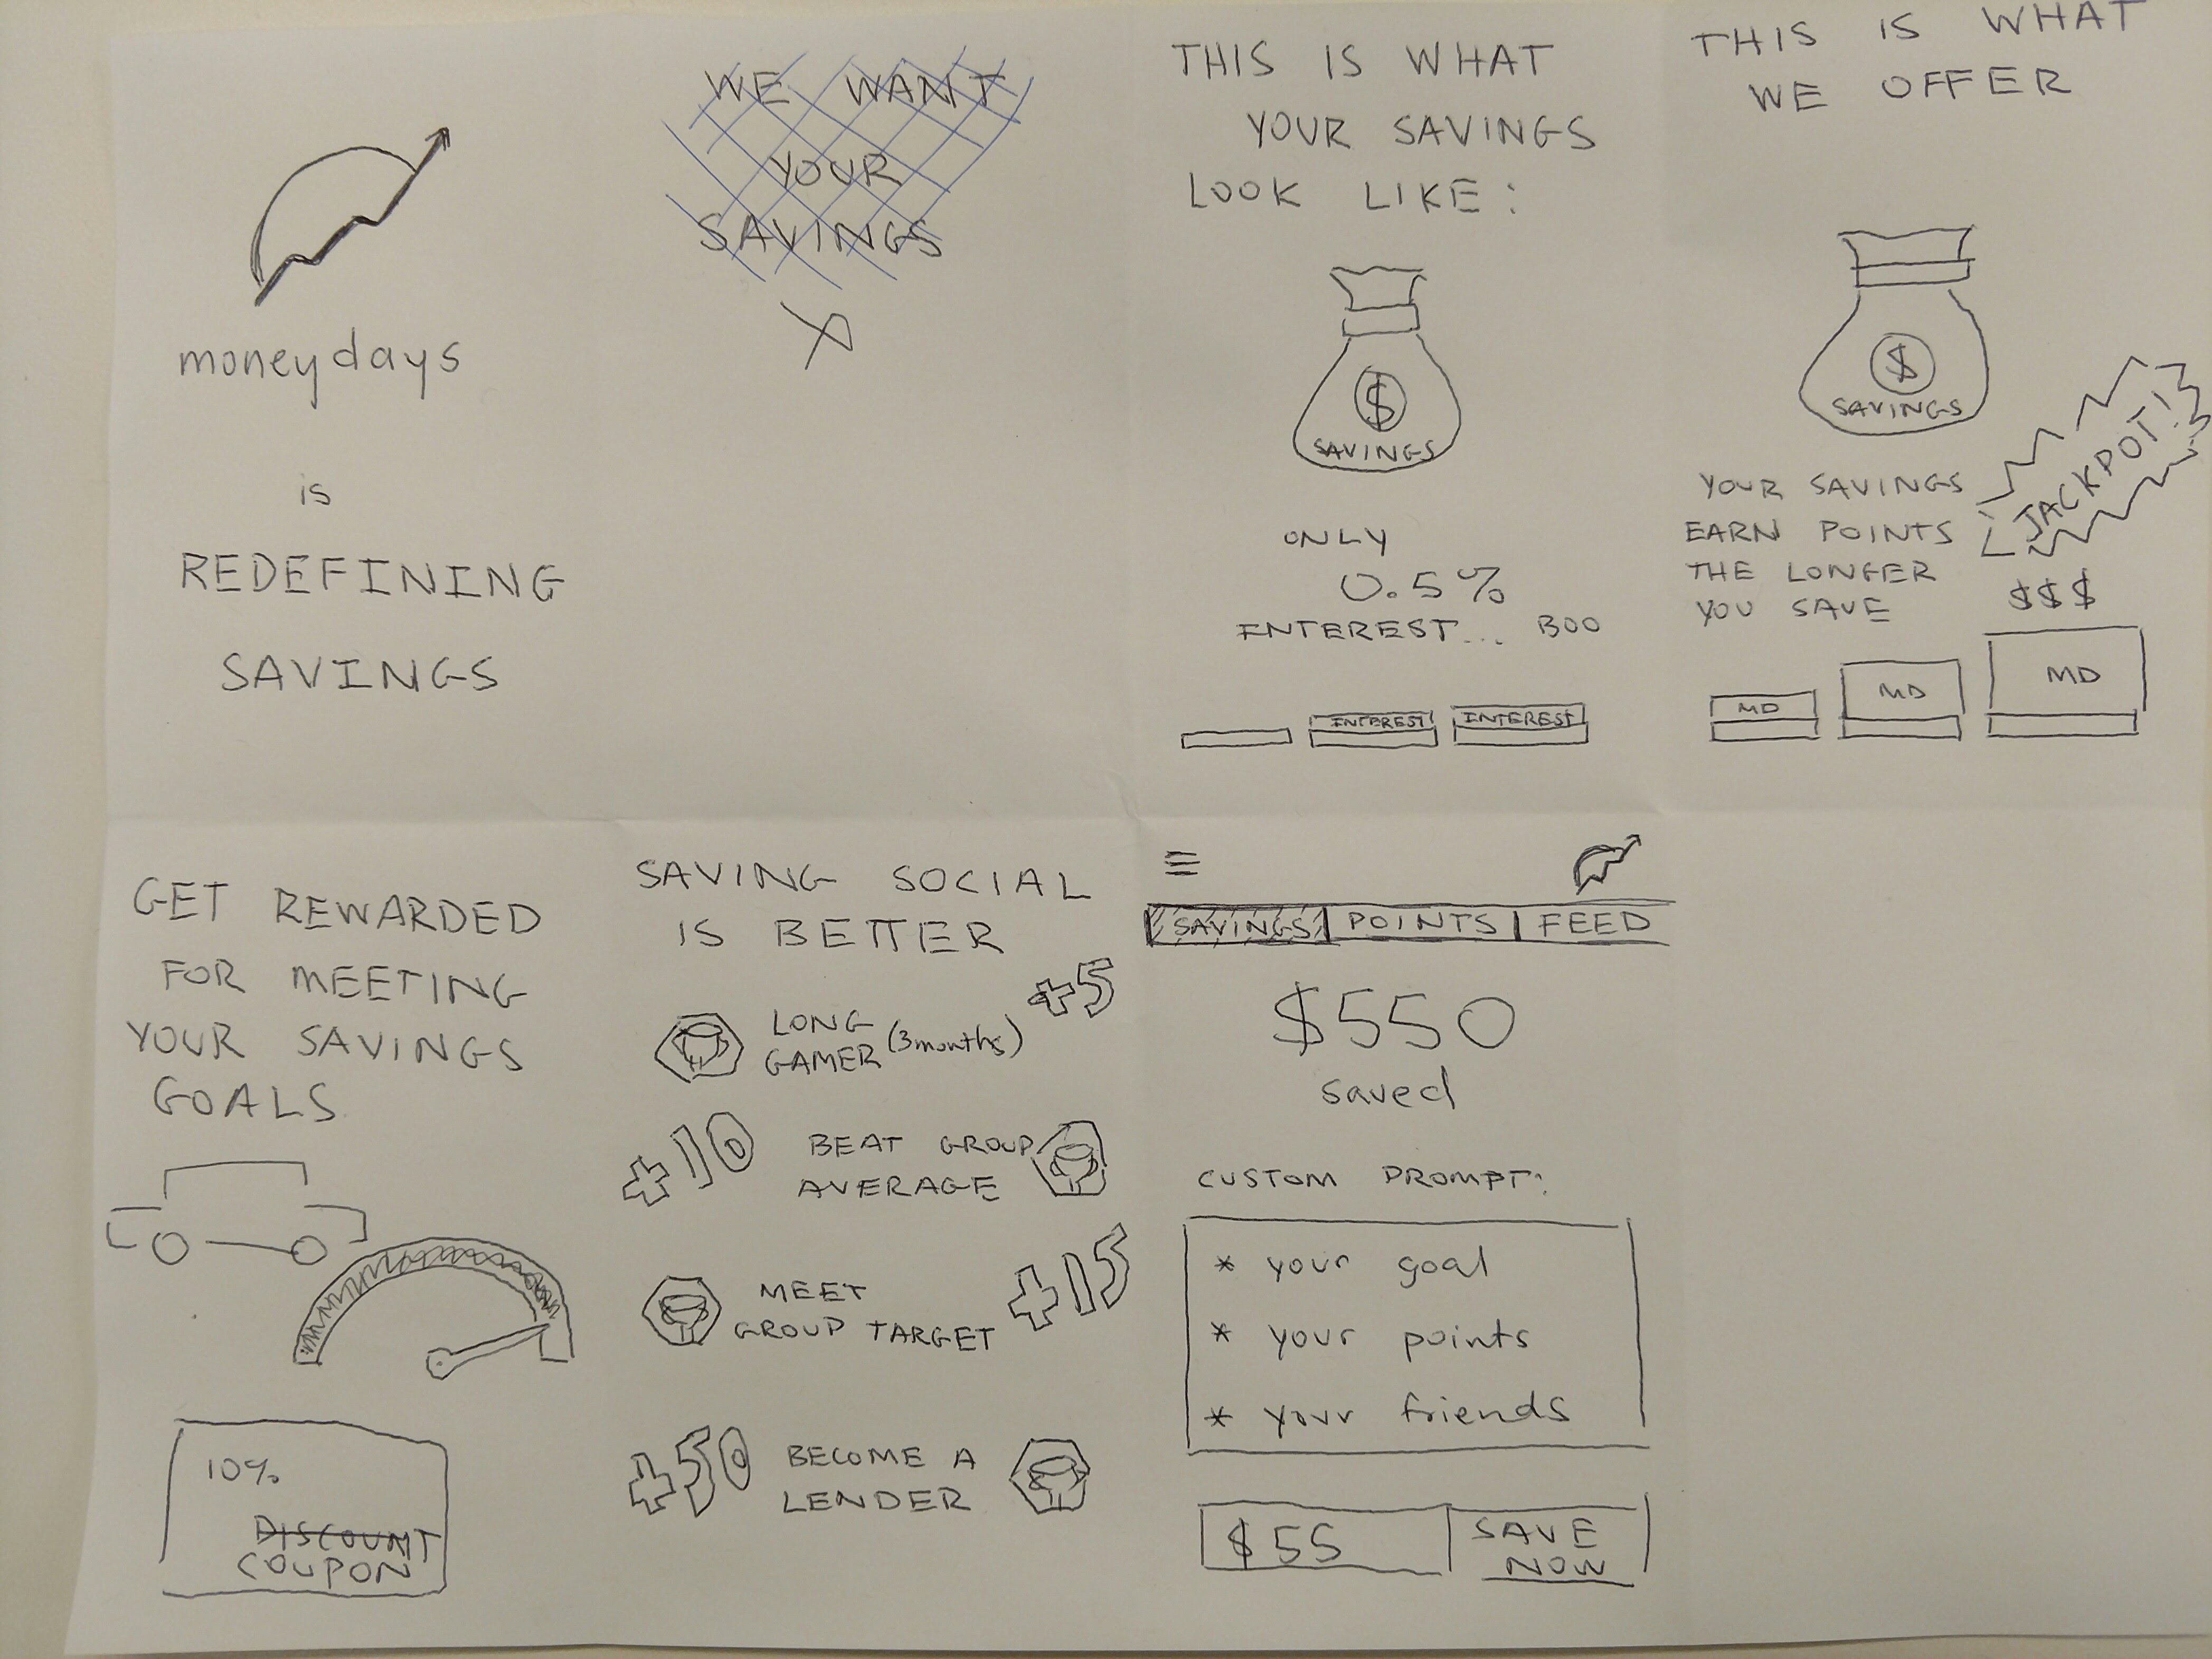 moneydays
is
REDEFINING
SAVINGS
WE WANT
YOUR
SAVINGS
X
THIS IS WHAT
YOUR SAVINGS
LOOK LIKE:
$
SAVINGS
ONLY
0.5%
INTEREST... BOO
INTEREST INTEREST
THIS IS WHAT
WE OFFER
$
SAVINGS
JACKPOT!
YOUR SAVINGS
EARN POINTS
THE LONGER
YOU SAVE
$$$
MD MD MD
GET REWARDED
FOR MEETING
YOUR SAVINGS
GOALS
10%
DISCOUNT
COUPON
SAVING SOCIAL
IS BETTER
LONG
GAMER (3months)
+5
+10
BEAT GROUP
AVERAGE
MEET
GROUP TARGET
+15
+50
BECOME A
LENDER
SAVINGS POINTS FEED
$550
saved
CUSTOM PROMPT:
* your goal
* your points
* your friends
$55
SAVE
NOW